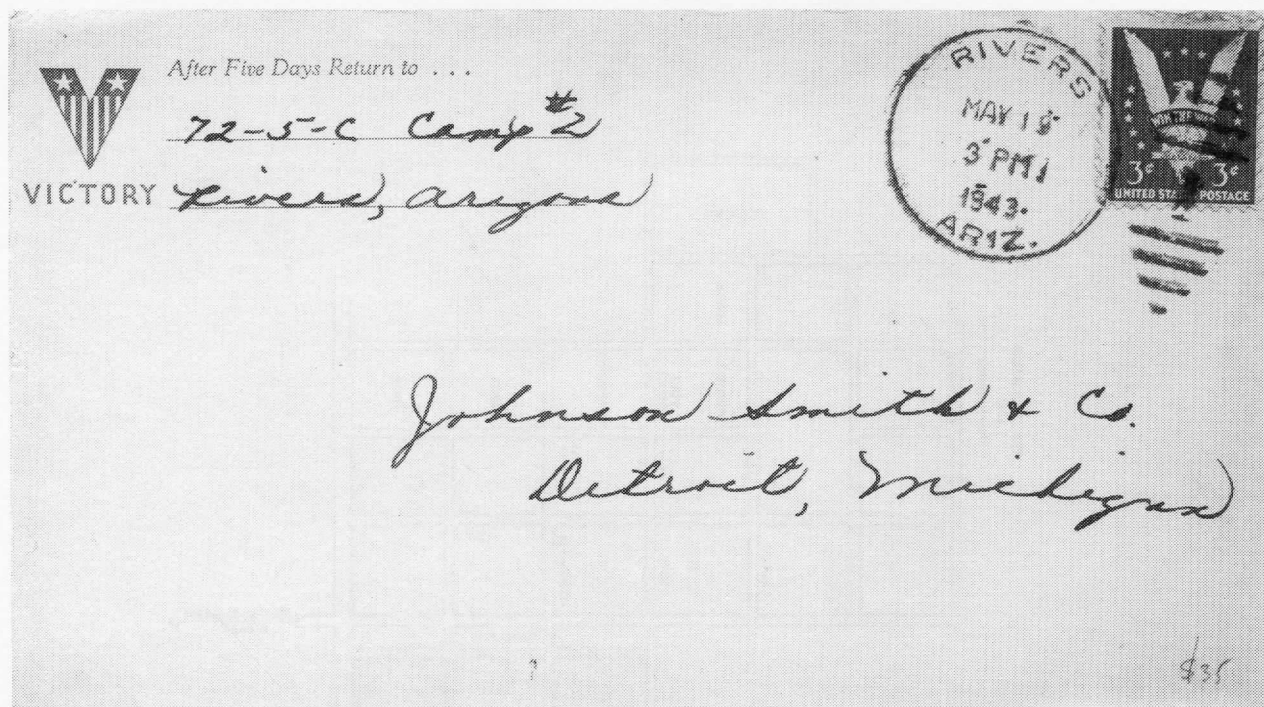 After Five Days Return to ...
72-5-C Camp #2
VICTORY Rivers, Arizona
RIVERS
MAY 19
3 PM
1943
ARIZ.
WIN THE WAR
3¢ 3¢
UNITED STATES POSTAGE
Johnson Smith & Co.
Detroit, Michigan
$35